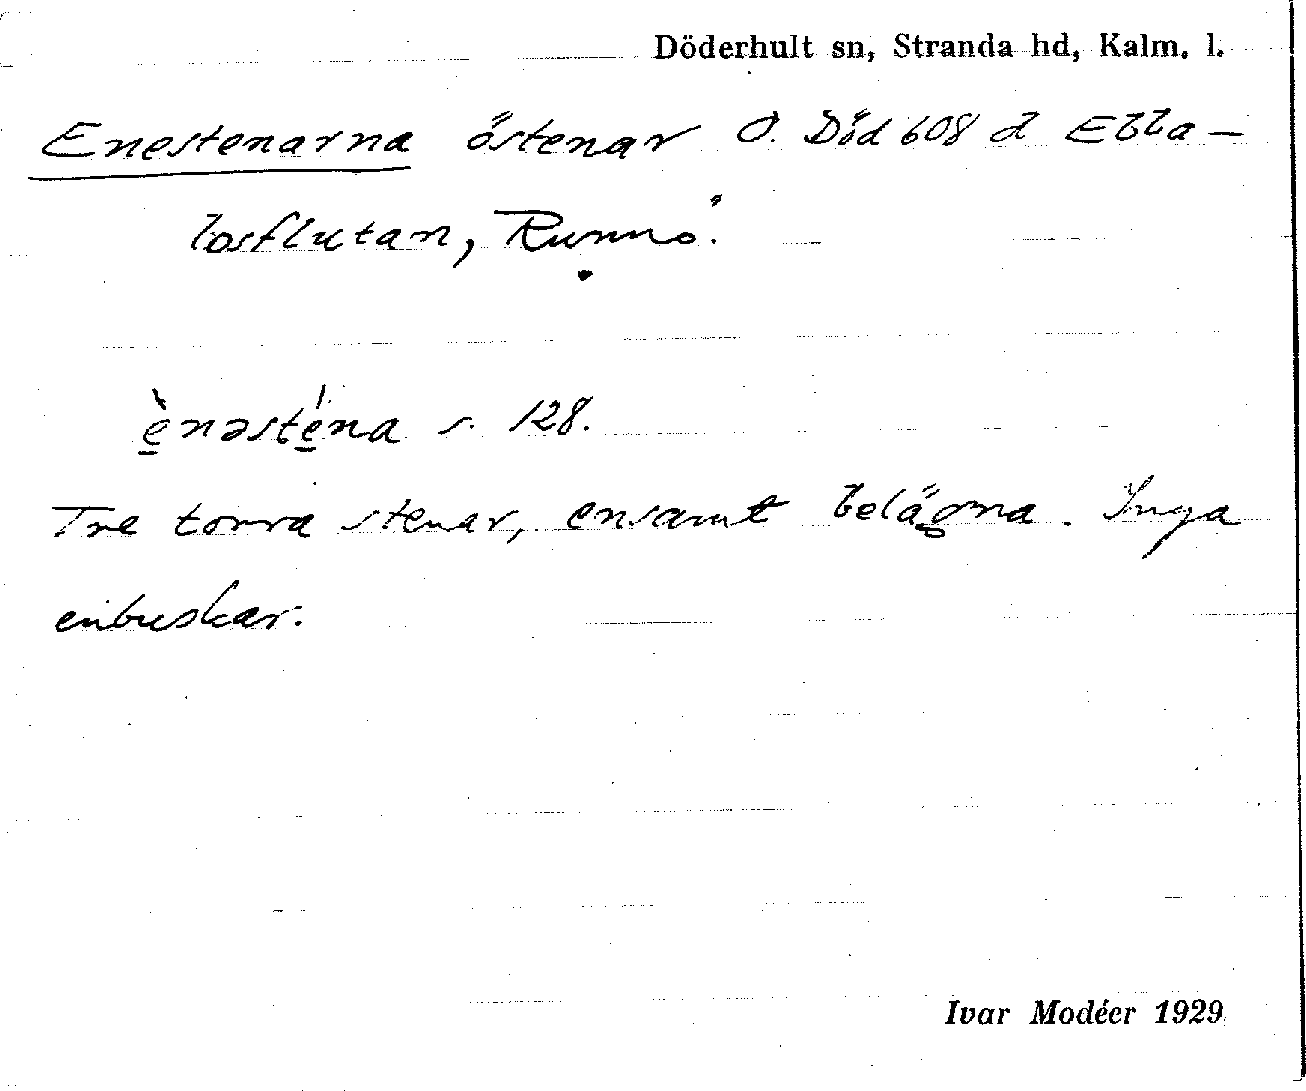 Döderhult sn, Stranda hd, Kalm. l.
Enestenarna östenar Ö. Död 608 d Ebba-
losflutan, Runnö.
ènəsténa s. 128.
Tre torra stenar, ensamt belägna. Inga
enbuskar.
Ivar Modéer 1929